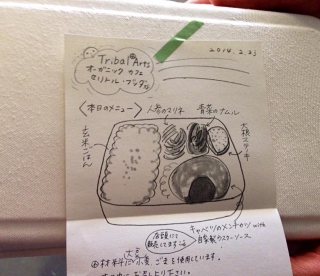 2014.2.23
Tribal Arts
オーガニック カフェ
リトル・ブッダ
〈本日のメニュー〉
人参のマリネ
青菜のナムル
大根ステーキ
玄米ごはん
キャベツのメンチカツ with
自家製ウスターソース
店頭にて
販売してます
※材料に大豆、小麦、ごまを使用しています。